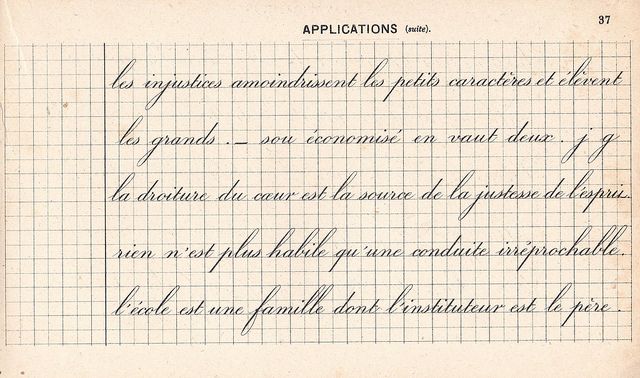 37
APPLICATIONS (suite).
les injustices amoindrissent les petits caractères et élèvent
les grands. — sou économisé en vaut deux. j g
la droiture du cœur est la source de la justesse de l'esprit.
rien n'est plus habile qu'une conduite irréprochable.
l'école est une famille dont l'instituteur est le père.